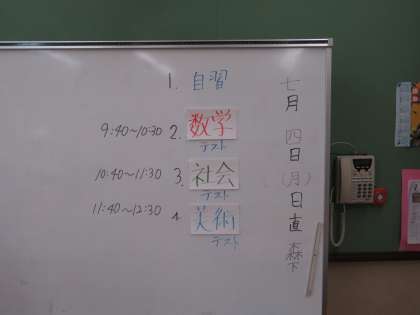 1. 自習
9:40~10:30 2. 数学
テスト
10:40~11:30 3. 社会
テスト
11:40~12:30 4. 美術
テスト
七月四日(月)日直 森下